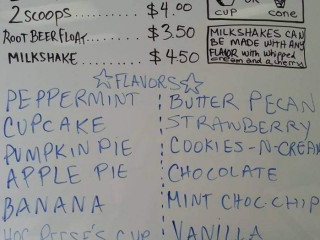 2 SCOOPS......... $4.00
ROOT BEER FLOAT... $3.50
MILKSHAKE......... $4.50
OR
CUP cone
MILKSHAKES CAN
BE MADE WITH ANY
FLAVOR with whipped
cream and a cherry
FLAVORS
PEPPERMINT
CUPCAKE
PUMPKIN PIE
APPLE PIE
BANANA
REESE'S CUP
BUTTER PECAN
STRAWBERRY
COOKIES-N-CREAM
CHOCOLATE
MINT CHOC CHIP
VANILLA